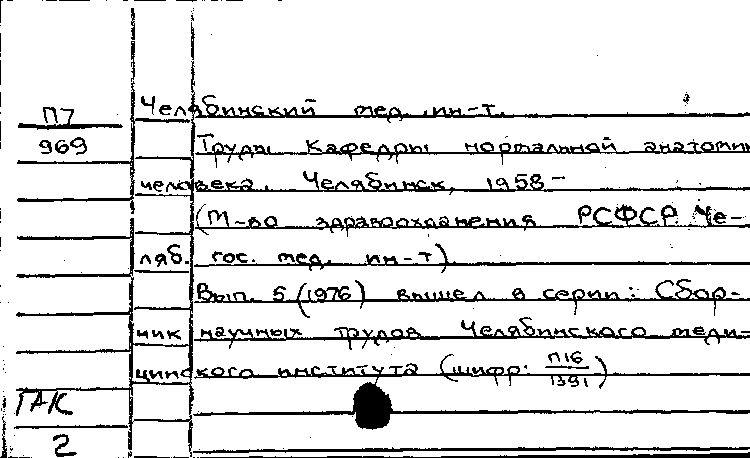 Челябинский мед. ин-т.
П7
969
Труды Кафедры нормальной анатомии
человека. Челябинск, 1958-
(М-во здравоохранения РСФСР. Че-
ляб. гос. мед. ин-т).
Вып. 5 (1976) вышел в серии: Сбор-
ник научных трудов Челябинского меди-
цинского института (шифр: П16/1391)
ГАК
2